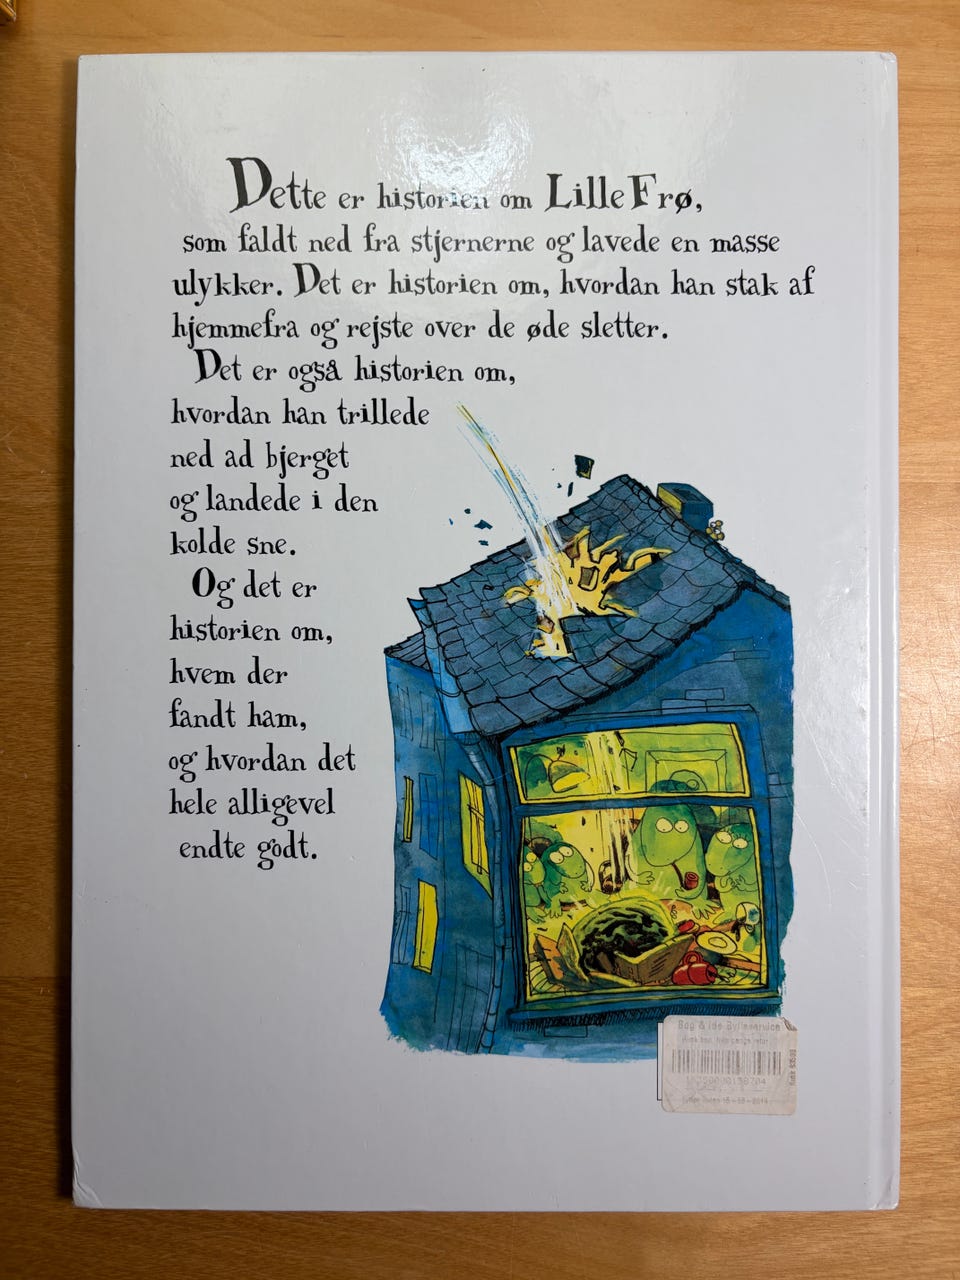 Dette er historien om Lille Frø,
som faldt ned fra stjernerne og lavede en masse
ulykker. Det er historien om, hvordan han stak af
hjemmefra og rejste over de øde sletter.
Det er også historien om,
hvordan han trillede
ned ad bjerget
og landede i den
kolde sne.
Og det er
historien om,
hvem der
fandt ham,
og hvordan det
hele alligevel
endte godt.
Bog & Ide Bytteservice